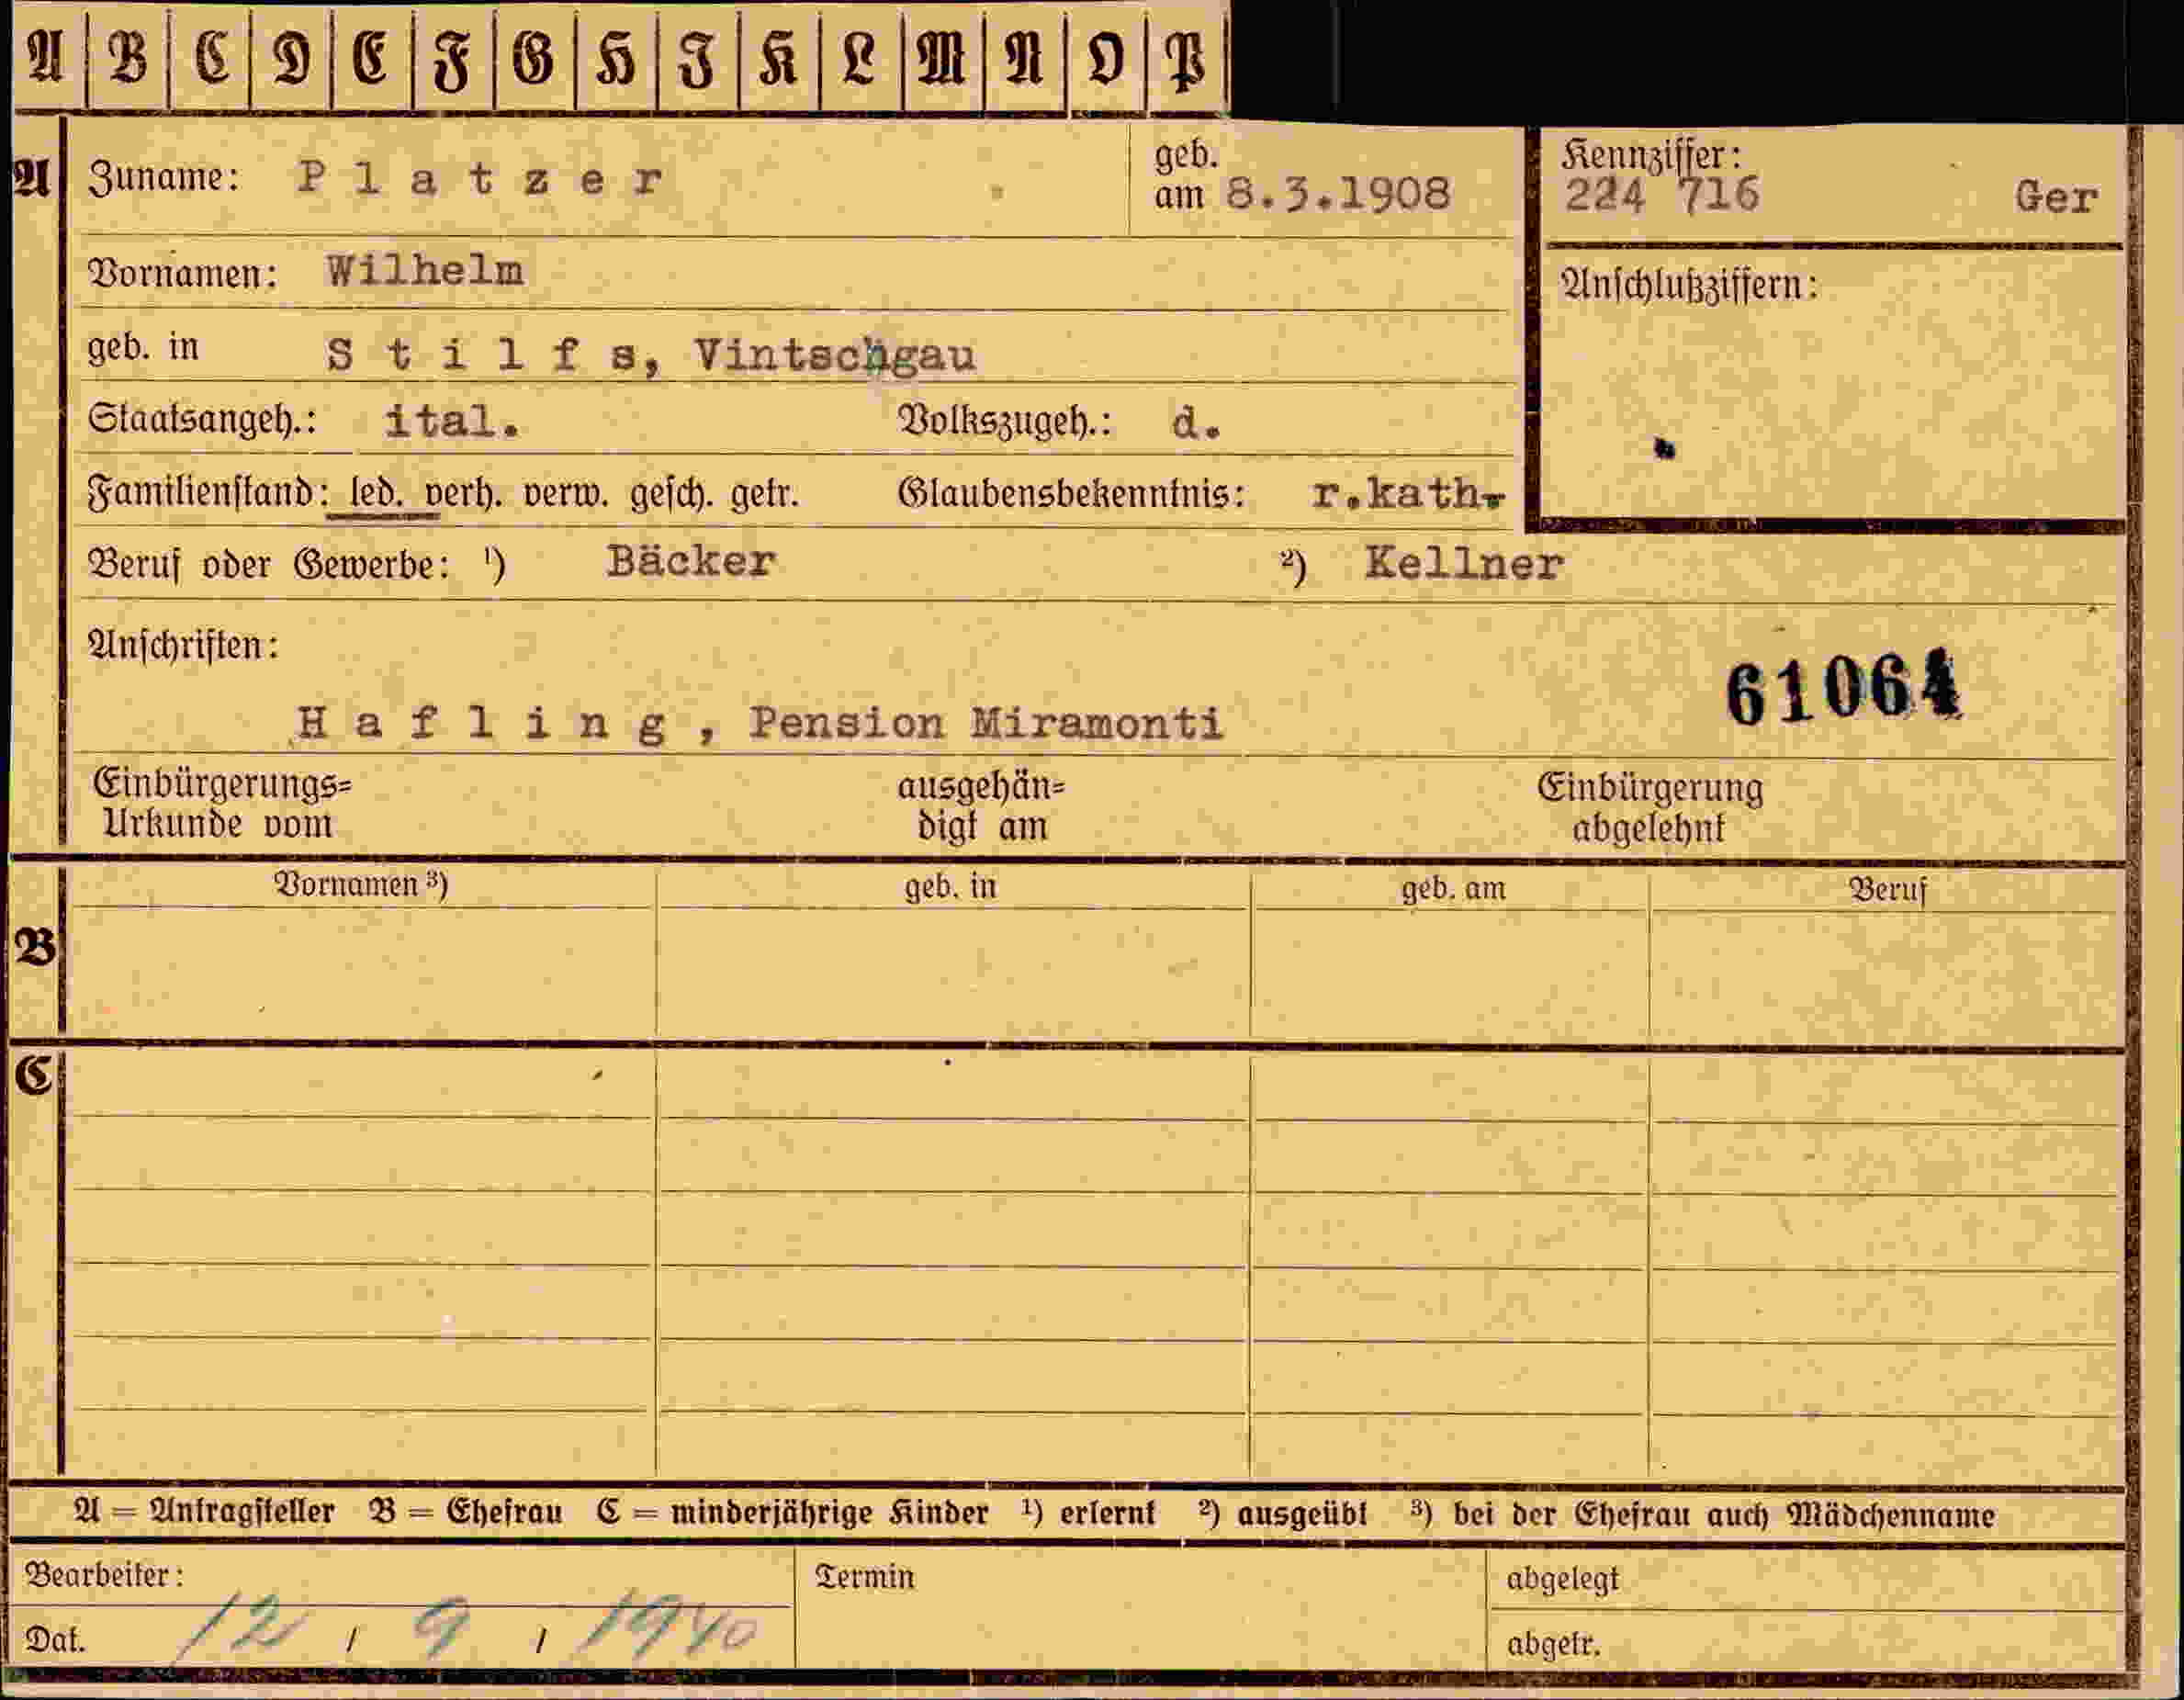 A B C D E F G H J K L M N O P
A Zuname: Platzer geb. am 8.3.1908 Kennziffer: 224 716 Ger
Vornamen: Wilhelm Anschlußziffern:
geb. in Stilfs, Vintschgau
Staatsangeh.: ital. Volkszugeh.: d.
Familienstand: led. verh. verw. gesch. getr. Glaubensbekenntnis: r.kath.
Beruf oder Gewerbe: 1) Bäcker 2) Kellner
Anschriften:
61064
Hafling, Pension Miramonti
Einbürgerungs= ausgehän= Einbürgerung
Urkunde vom digt am abgelehnt
B Vornamen 3) geb. in geb. am Beruf
C
A = Antragsteller B = Ehefrau C = minderjährige Kinder 1) erlernt 2) ausgeübt 3) bei der Ehefrau auch Mädchenname
Bearbeiter: Termin abgelegt
Dat. 12 / 9 / 1940 abgetr.